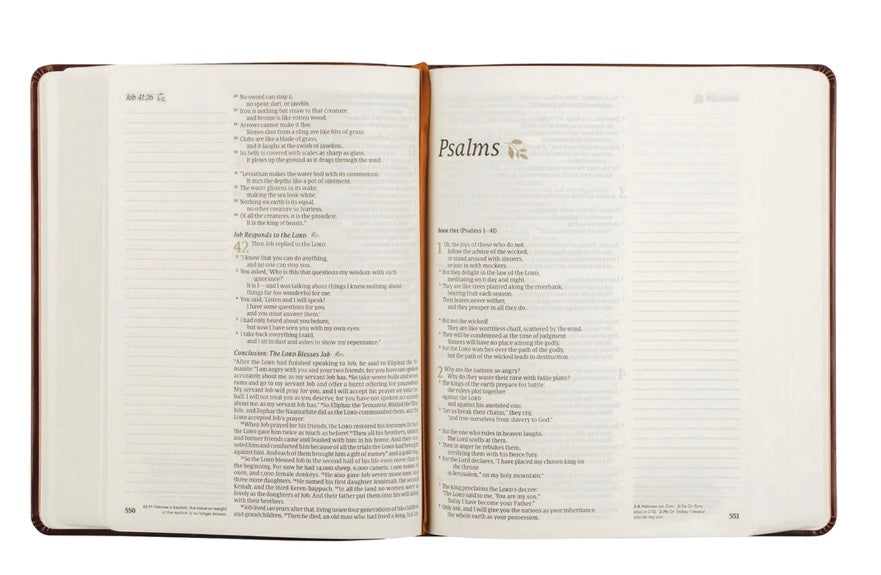 Job 41:26
26 No sword can stop it,
no spear, dart, or javelin.
27 Iron is nothing but straw to that creature,
and bronze is like rotten wood.
28 Arrows cannot make it flee.
Stones shot from a sling are like bits of grass.
29 Clubs are like a blade of grass,
and it laughs at the swish of javelins.
30 Its belly is covered with scales as sharp as glass.
It plows up the ground as it drags through the mud.
31 "Leviathan makes the water boil with its commotion.
It stirs the depths like a pot of ointment.
32 The water glistens in its wake,
making the sea look white.
33 Nothing on earth is its equal,
no other creature so fearless.
34 Of all the creatures, it is the proudest.
It is the king of beasts."
Job Responds to the LORD
42 Then Job replied to the LORD:
2 "I know that you can do anything,
and no one can stop you.
3 You asked, 'Who is this that questions my wisdom with such
ignorance?'
It is I—and I was talking about things I knew nothing about,
things far too wonderful for me.
4 You said, 'Listen and I will speak!
I have some questions for you,
and you must answer them.'
5 I had only heard about you before,
but now I have seen you with my own eyes.
6 I take back everything I said,
and I sit in dust and ashes to show my repentance."
Conclusion: The LORD Blesses Job
7 After the LORD had finished speaking to Job, he said to Eliphaz the Te-
manite: "I am angry with you and your two friends, for you have not spoken
accurately about me, as my servant Job has. 8 So take seven bulls and seven
rams and go to my servant Job and offer a burnt offering for yourselves.
My servant Job will pray for you, and I will accept his prayer on your be-
half. I will not treat you as you deserve, for you have not spoken accurately
about me, as my servant Job has." 9 So Eliphaz the Temanite, Bildad the Shu-
hite, and Zophar the Naamathite did as the LORD commanded them, and the
LORD accepted Job's prayer.
10 When Job prayed for his friends, the LORD restored his fortunes. In fact,
the LORD gave him twice as much as before! 11 Then all his brothers, sisters,
and former friends came and feasted with him in his home. And they con-
soled him and comforted him because of all the trials the LORD had brought
against him. And each of them brought him a gift of money* and a gold ring.
12 So the LORD blessed Job in the second half of his life even more than in
the beginning. For now he had 14,000 sheep, 6,000 camels, 1,000 teams of
oxen, and 1,000 female donkeys. 13 He also gave Job seven more sons and
three more daughters. 14 He named his first daughter Jemimah, the second
Keziah, and the third Keren-happuch. 15 In all the land no women were as
lovely as the daughters of Job. And their father put them into his will along
with their brothers.
16 Job lived 140 years after that, living to see four generations of his children
and grandchildren. 17 Then he died, an old man who had lived a long, full life.
550
42:11 Hebrew a kesitah; the value or weight
of the kesitah is no longer known.
Psalms
BOOK ONE (Psalms 1–41)
1 Oh, the joys of those who do not
follow the advice of the wicked,
or stand around with sinners,
or join in with mockers.
2 But they delight in the law of the LORD,
meditating on it day and night.
3 They are like trees planted along the riverbank,
bearing fruit each season.
Their leaves never wither,
and they prosper in all they do.
4 But not the wicked!
They are like worthless chaff, scattered by the wind.
5 They will be condemned at the time of judgment.
Sinners will have no place among the godly.
6 For the LORD watches over the path of the godly,
but the path of the wicked leads to destruction.
2 Why are the nations so angry?
Why do they waste their time with futile plans?
2 The kings of the earth prepare for battle;
the rulers plot together
against the LORD
and against his anointed one.
3 "Let us break their chains," they cry,
"and free ourselves from slavery to God."
4 But the one who rules in heaven laughs.
The Lord scoffs at them.
5 Then in anger he rebukes them,
terrifying them with his fierce fury.
6 For the Lord declares, "I have placed my chosen king on
the throne
in Jerusalem,* on my holy mountain."
7 The king proclaims the LORD's decree:
"The LORD said to me, 'You are my son.*
Today I have become your Father.*
8 Only ask, and I will give you the nations as your inheritance,
the whole earth as your possession.
2:6 Hebrew on Zion. 2:7a Or Son;
also in 2:12. 2:7b Or Today I reveal
you as my son.
551